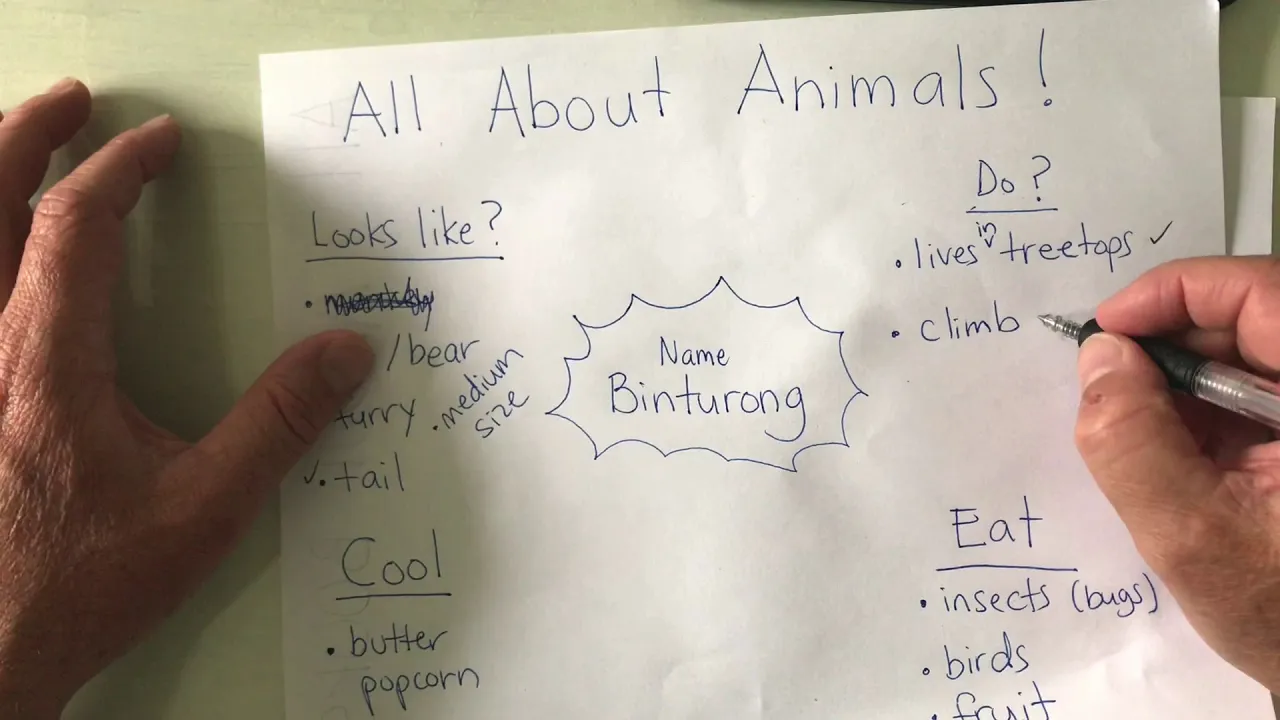 All About Animals!
Looks like?
• /bear
furry • medium
size
✓• tail
Cool
• butter
popcorn
Name
Binturong
Do?
• lives in treetops ✓
• climb
Eat
• insects (bugs)
• birds
• fruit